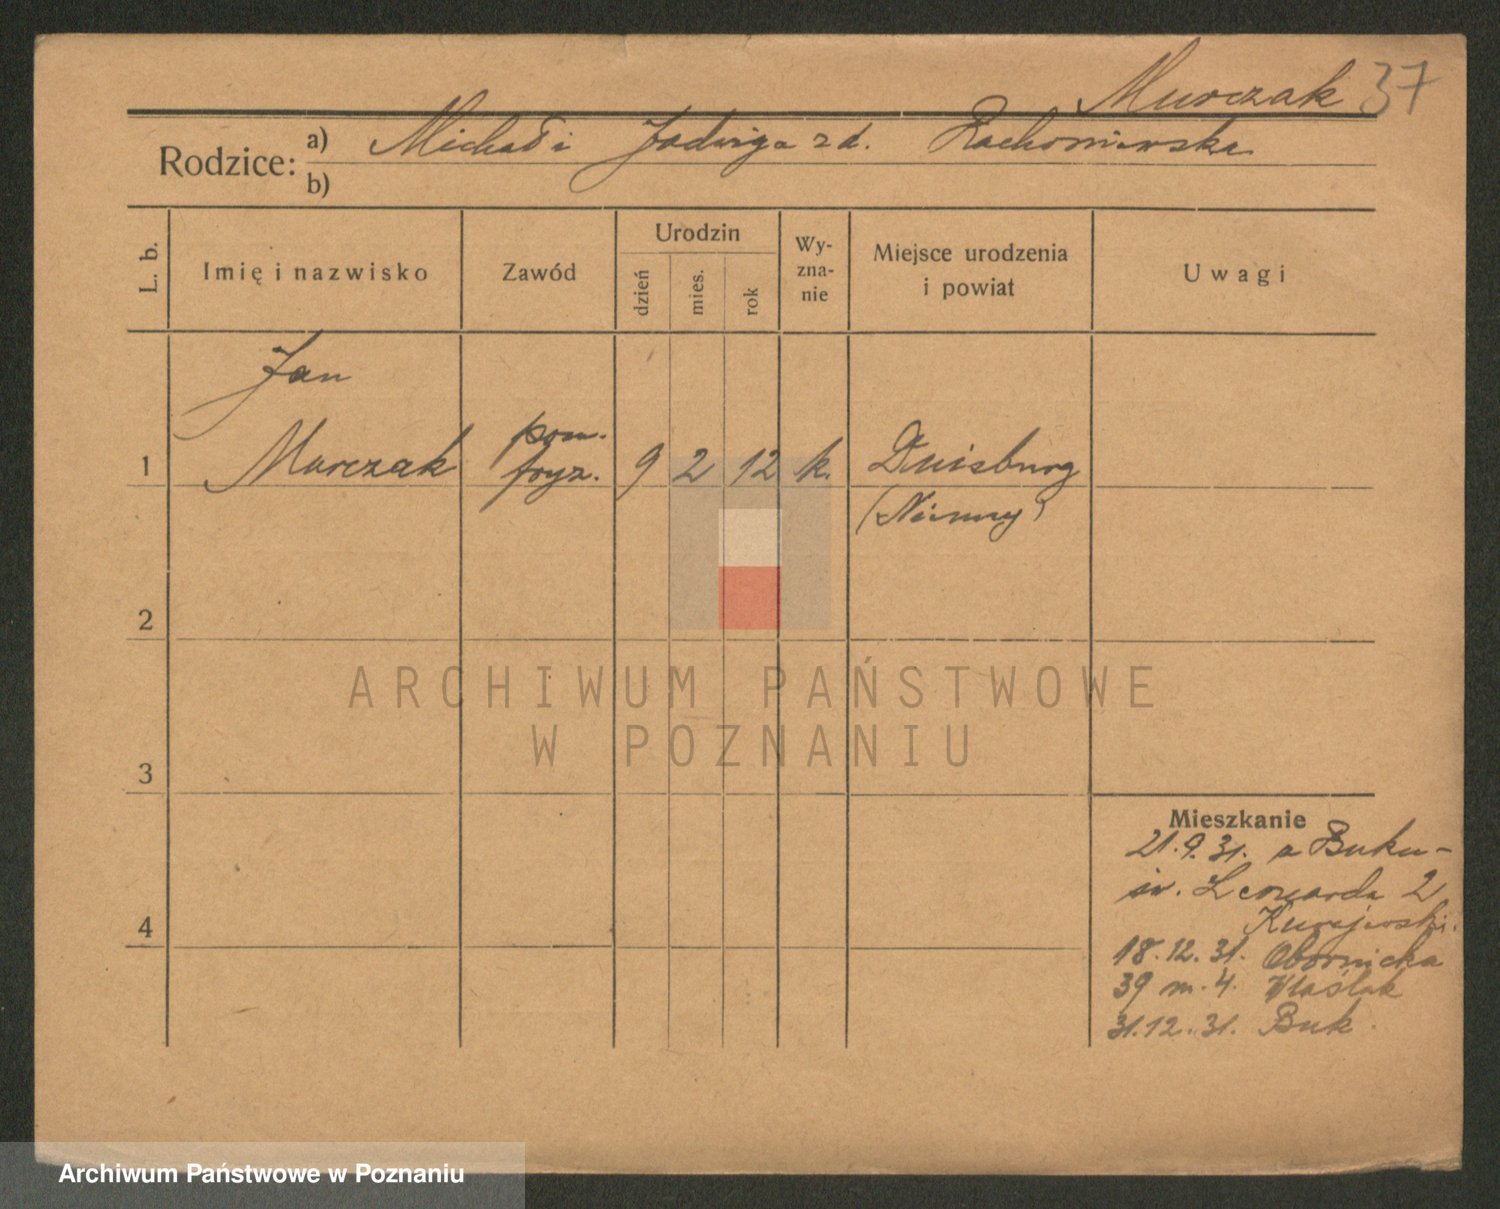 Murczak 37
Rodzice: a) Michał i Jadwiga z d. Rachoniewska
b)
L. b. Imię i nazwisko Zawód Urodzin dzień mies. rok Wy-zna-nie Miejsce urodzenia i powiat Uwagi
Jan
1 Murczak pom. fryz. 9 2 12 k. Duisburg
(Niemcy)
2
3
4
Mieszkanie
21.9.31. z Buku -
św. Leonarda 2
18.12.31. Obornicka
39 m. 4.
31.12.31. Buk.
ARCHIWUM PAŃSTWOWE
W POZNANIU
Archiwum Państwowe w Poznaniu